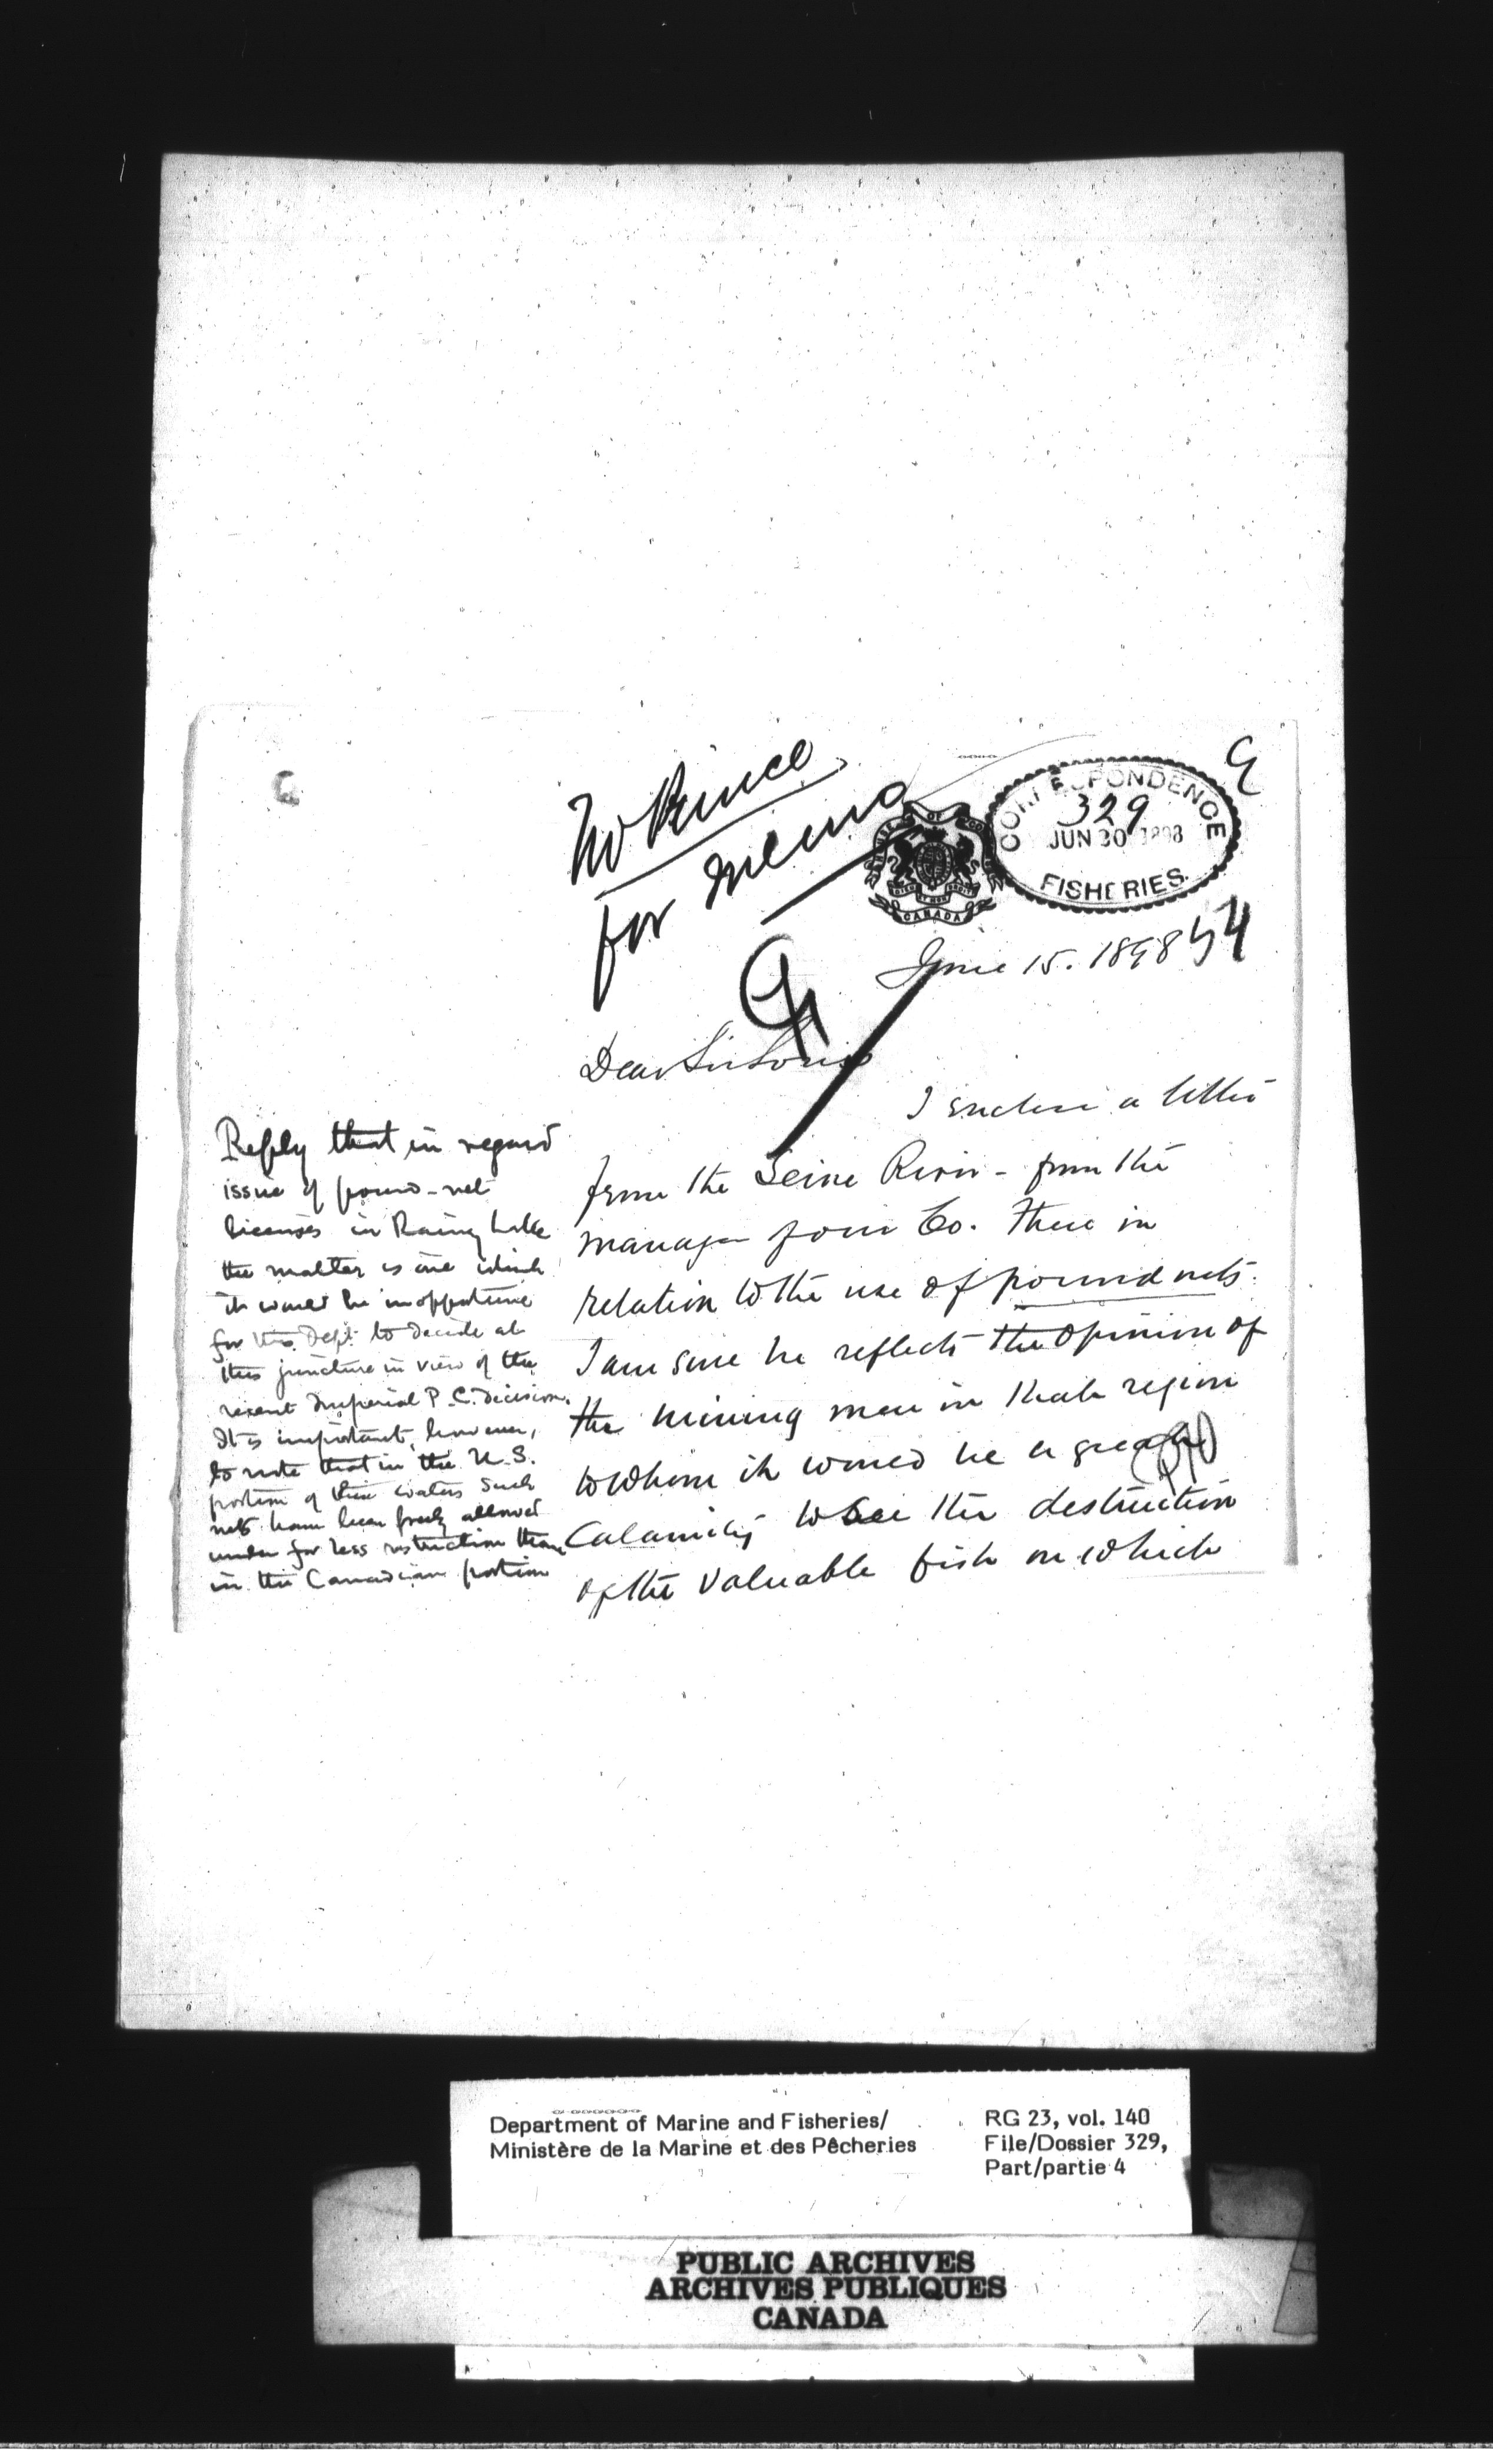 Prince
for memo
CORRESPONDENCE
329
JUN 30 1898
FISHERIES.
HOUSE OF COMMONS
DIEU ET MON DROIT
CANADA
June 15. 1898
54
Dear Sir Louis
I enclose a letter
from the Seine River - from the
manager of our Co. there in
relation to the use of pound nets.
I am sure he reflects the opinion of
the mining men in that region
to whom it would be a great
Calamity to see the destruction
of the valuable fish on which
Reply that in regard
issue of pound-net
licenses in Rainy Lake
the matter is one which
it would be inopportune
for this Dept. to decide at
this juncture in view of the
recent Imperial P.C. Decision.
It is important, however,
to note that in the U.S.
portion of these waters such
nets have been freely allowed
under far less restriction than
in the Canadian portion
Department of Marine and Fisheries/
Ministère de la Marine et des Pêcheries
RG 23, vol. 140
File/Dossier 329,
Part/partie 4
PUBLIC ARCHIVES
ARCHIVES PUBLIQUES
CANADA